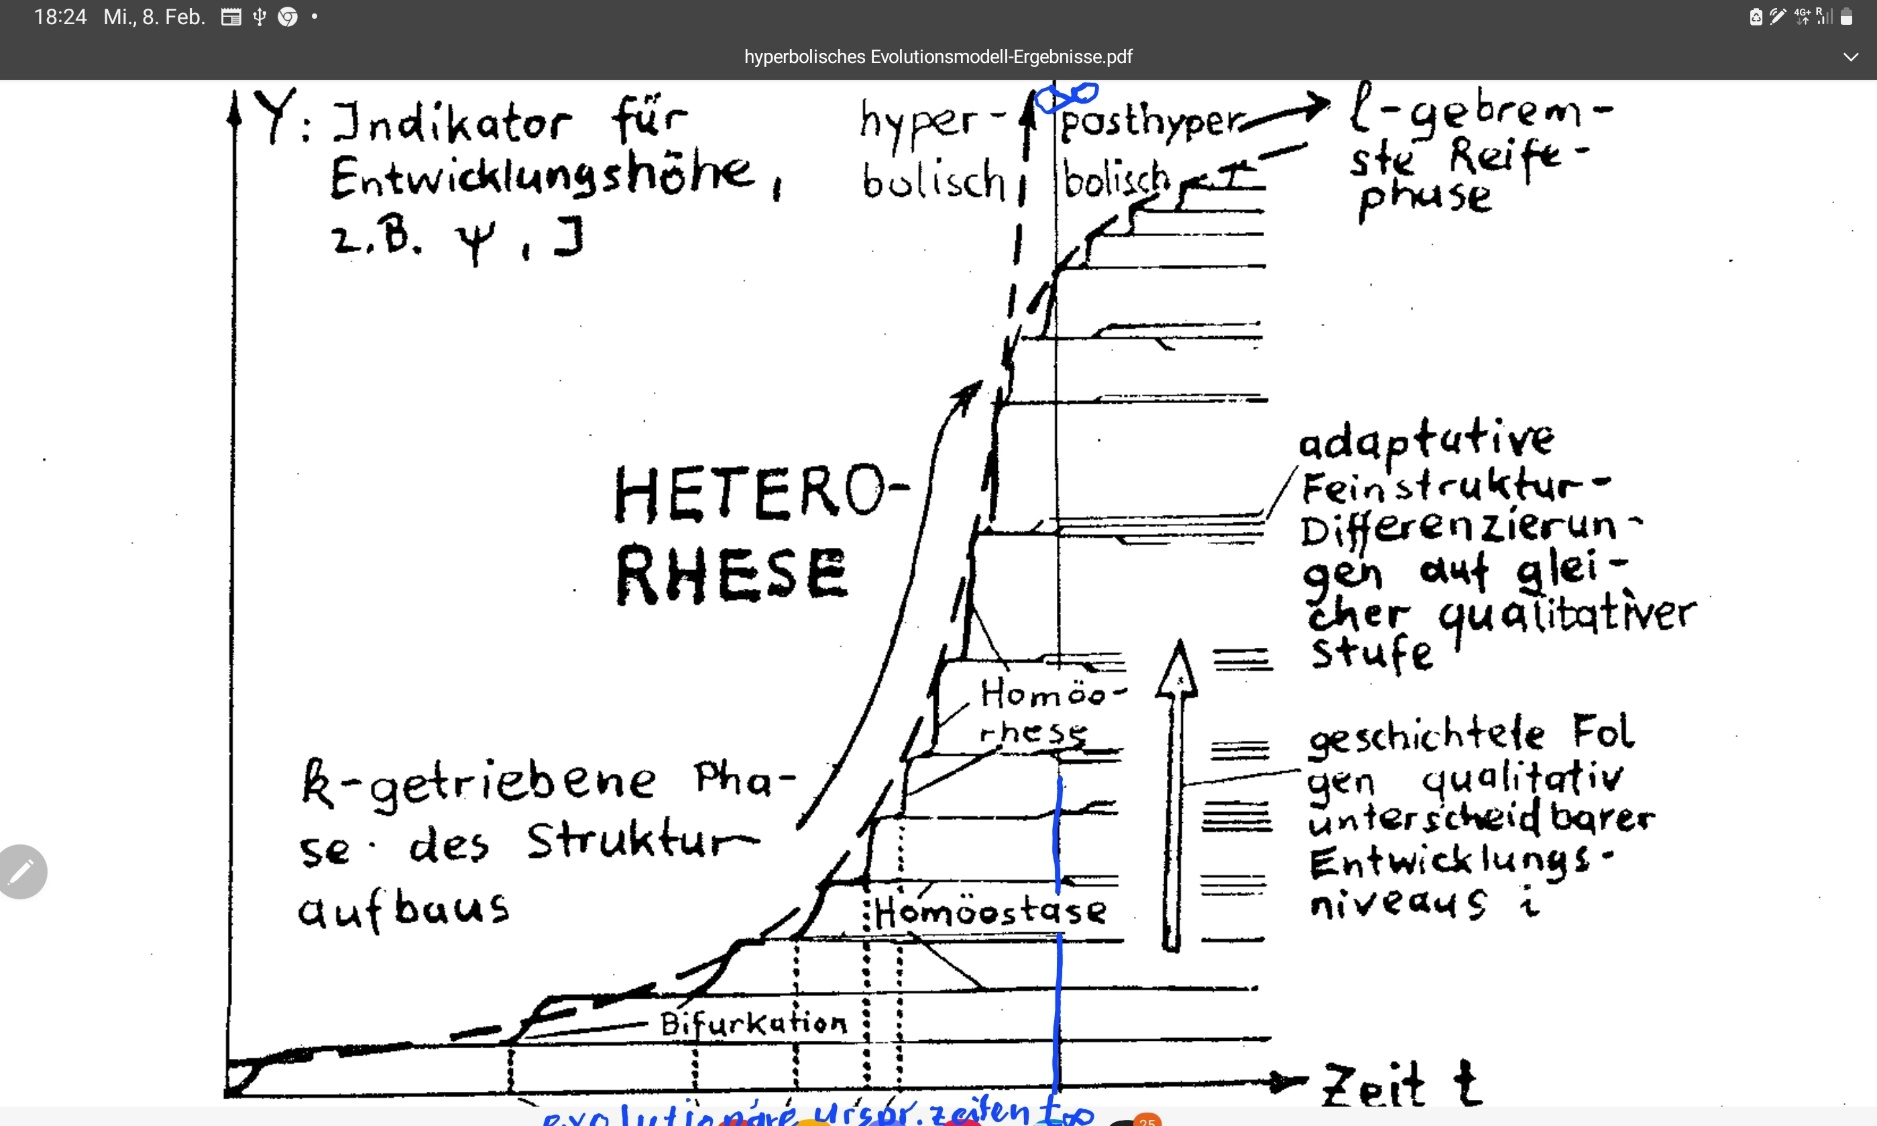 18:24 Mi., 8. Feb.
4G+ R
hyperbolisches Evolutionsmodell-Ergebnisse.pdf
Y: Indikator für
Entwicklungshöhe,
z.B. ψ, J
hyper-
bolisch
∞
posthyper
bolisch
l-gebrem-
ste Reife-
phase
HETERO-
RHESE
adaptative
Feinstruktur-
Differenzierun-
gen auf glei-
cher qualitativer
Stufe
Homöo-
rhese
k-getriebene Pha-
se des Struktur
aufbaus
geschichtete Fol
gen qualitativ
unterscheidbarer
Entwicklungs-
niveaus i
Homöostase
Bifurkation
Zeit t
evolutionäre urspr. zeiten t∞
25